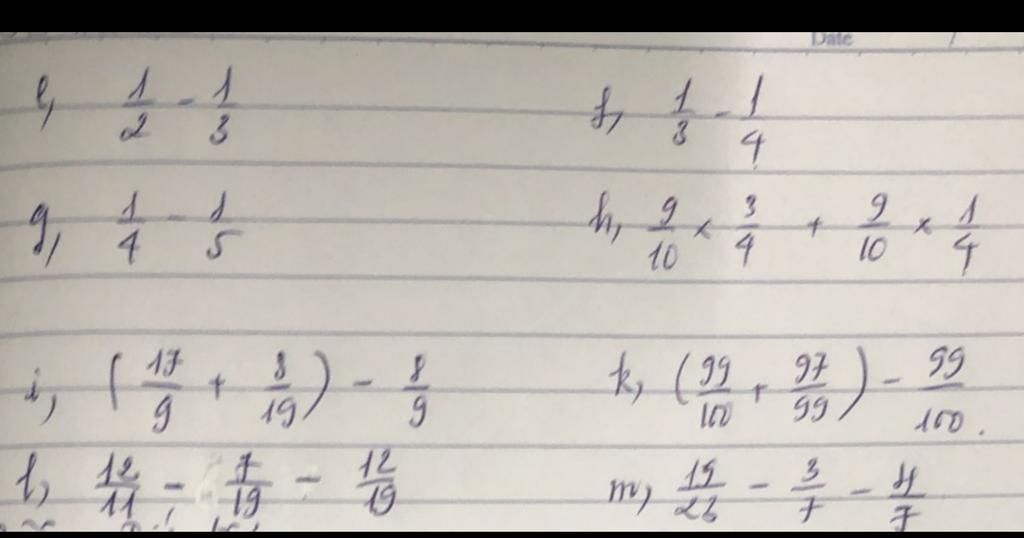 Date /
e, 1/2 - 1/3 f, 1/3 - 1/4
g, 1/4 - 1/5 h, 9/10 × 3/4 + 9/10 × 1/4
i, (17/9 + 8/19) - 8/9 k, (99/100 + 97/99) - 99/100.
l, 12/11 - 7/19 - 12/19 m, - 3/7 - 4/7